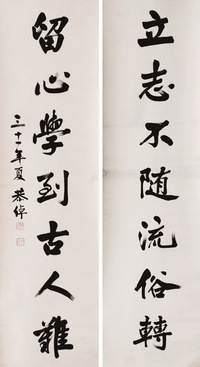 立志不隨流俗轉
留心學到古人難
三十一年夏 恭綽